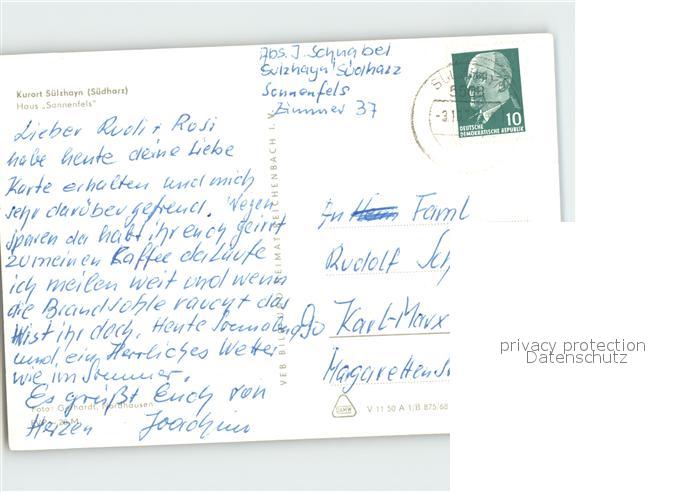 Kurort Sülzhayn (Südharz)
Haus „Sonnenfels"
Abs. J. Schnabel
Sülzhayn Südharz
Sonnenfels
Zimmer 37
10
DEUTSCHE
DEMOKRATISCHE REPUBLIK
Lieber Rudi + Rosi
habe heute deine Liebe
Karte erhalten und mich
sehr darüber gefreud. Wegen
sparen da habt ihr euch geirrt
zu meinen Kaffee da laufe
ich meilen weit und wenn
die Brandsohle raucht das
wist ihr doch. Heute Sonnabend
und ein Herrliches Wetter
wie im Sommer.
Es grüßt Euch von
Herzen Joachim
An Faml
Rudolf Sch
Karl-Marx
Margarettenst
VEB BILD UND HEIMAT REICHENBACH I. V.
V 11 50 A 1/B 875/68
Foto: Gebhardt, Nordhausen
privacy protection
Datenschutz